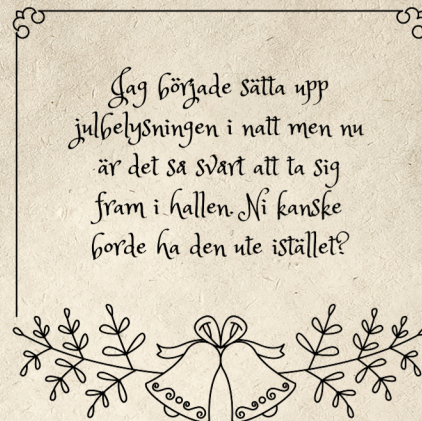 Jag började sätta upp
julbelysningen i natt men nu
är det så svårt att ta sig
fram i hallen. Ni kanske
borde ha den ute istället?